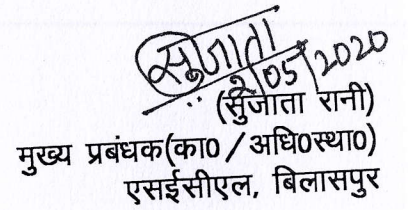 सुजाता
2/05/2020
(सुजाता रानी)
मुख्य प्रबंधक(का0/अधि0स्था0)
एसईसीएल, बिलासपुर